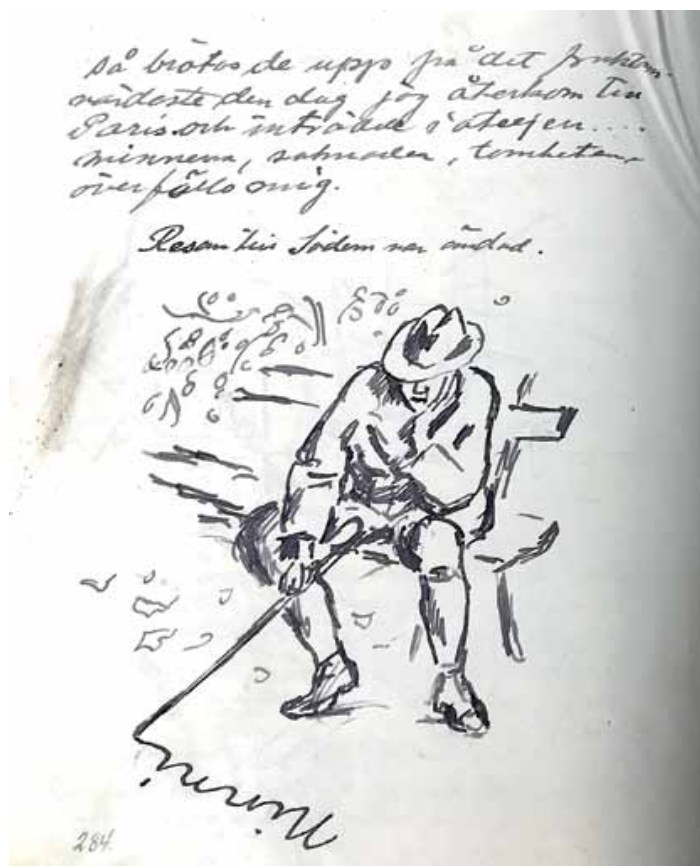 så brötos de upp på det fruktans-
värdaste den dag jag återkom till
Paris och inträdde i ateljen....
minnena, saknaden, tomheten,
överföllo mig.
Resan till Södern var ändad.
284.